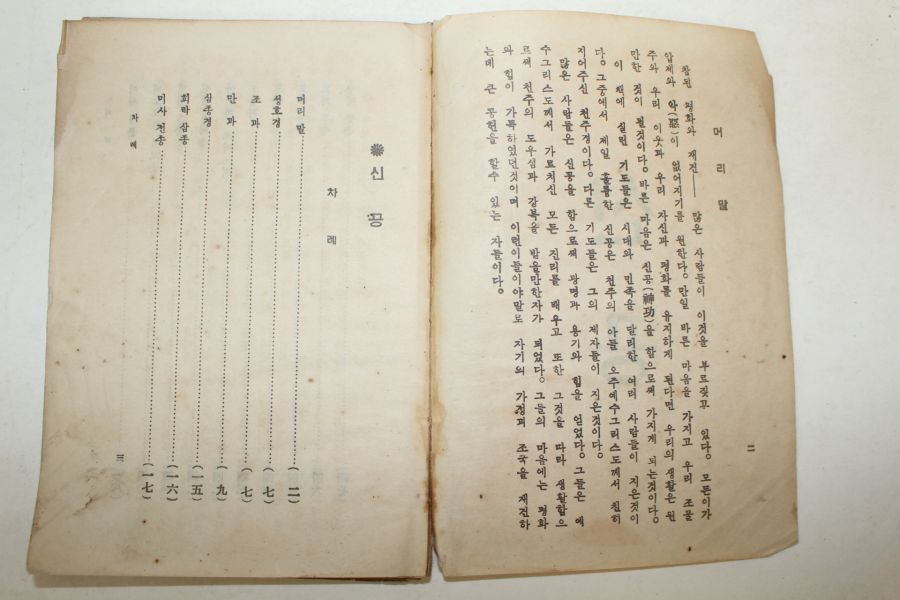 二
머리말
참된 평화와 재건── 많은 사람들이 이것을 부르짖고 있다。 모든이가
압제와 악(惡)이 없어지기를 원한다。 만일 바른 마음을 가지고 우리 조물
주와 우리 이웃과 우리 자신과 평화를 유지하게 된다면 우리의 생활은 원
만한 것이 될것이다。 바른 마음은 신공(神功)을 함으로써 가지게 되는것이다。
이 책에 실린 기도들은 시대와 민족을 달리한 여러 사람들이 지은것이
다。 그중에서 제일 훌륭한 신공은 천주의 아들 오주예수그리스도께서 친히
지어주신 천주경이다。 다른 기도들은 그의 제자들이 지은것이다。
많은 사람들은 신공을 함으로써 광명과 용기와 힘을 얻었다。 그들은 예
수그리스도께서 가르치신 모든 진리를 배우고 또한 그것을 따라 생활함으
르써 천주의 도우심과 강복을 받을만한자가 되었다。 그들의 마음에는 평화
와 힘이 가득하였던것이며 이런이들이야말로 자기의 가정과 조국을 재건하
는데 큰 공헌을 할수 있는 자들이다。
신공
차례
머리말(二)
성호경(七)
조과(七)
만과(九)
삼종경(一五)
희락삼종(一六)
미사전송(一七)
차례
三